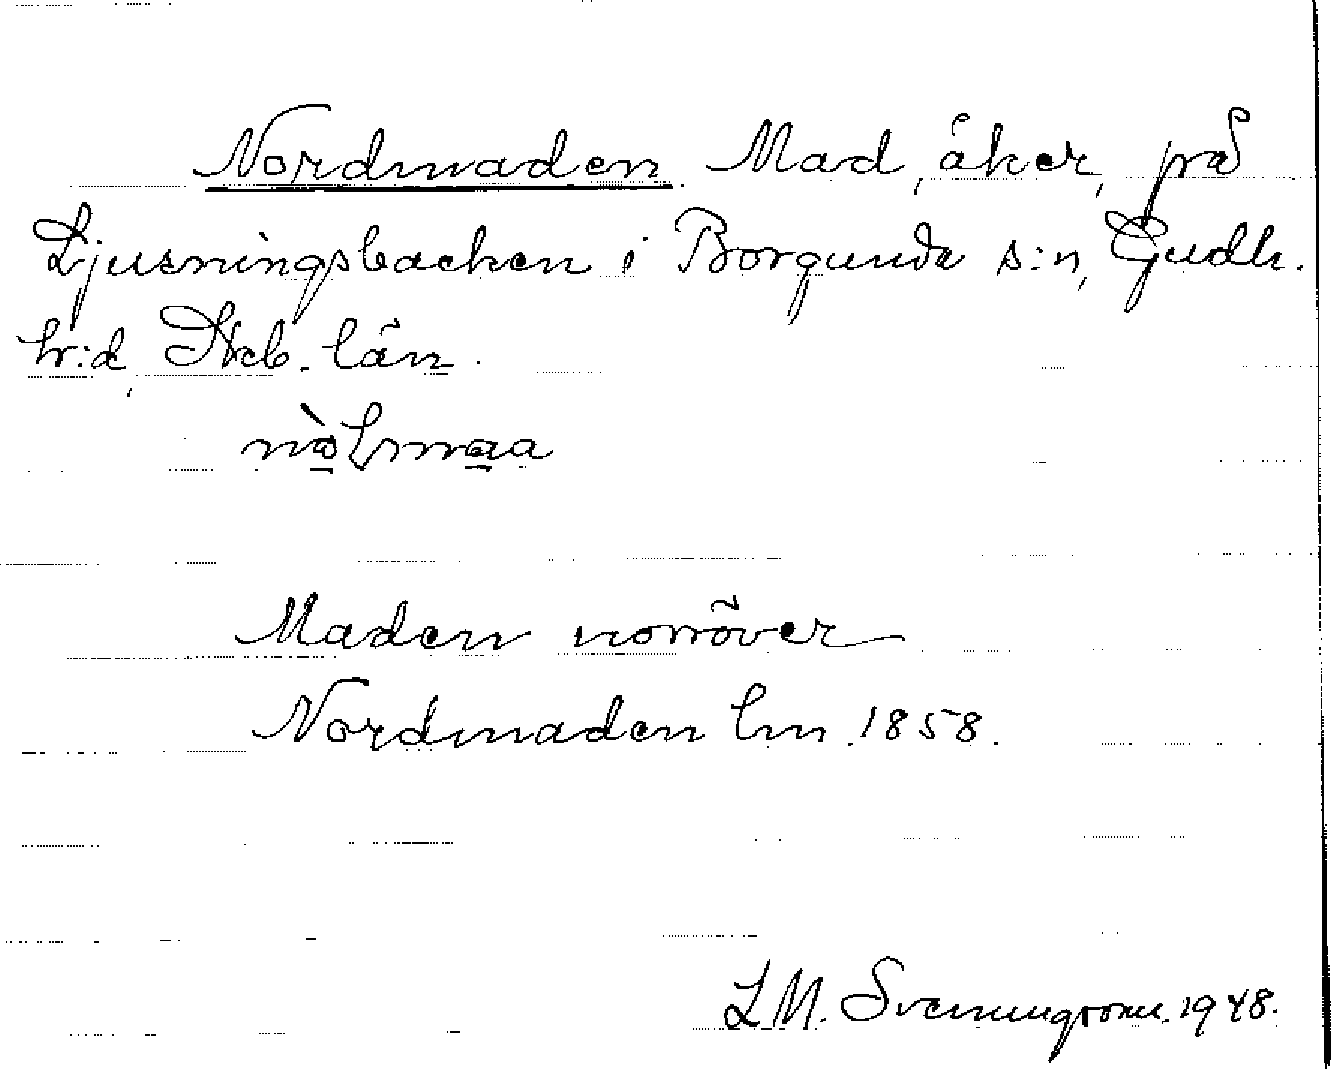 Nordmaden. Mad, åker, på
Ljusningsbacken i Borgunda s:n, Gudh.
h:d, Skb. län.
Maden norröver
Nordmaden lm 1858.
L.M. Svenungsson 1948.